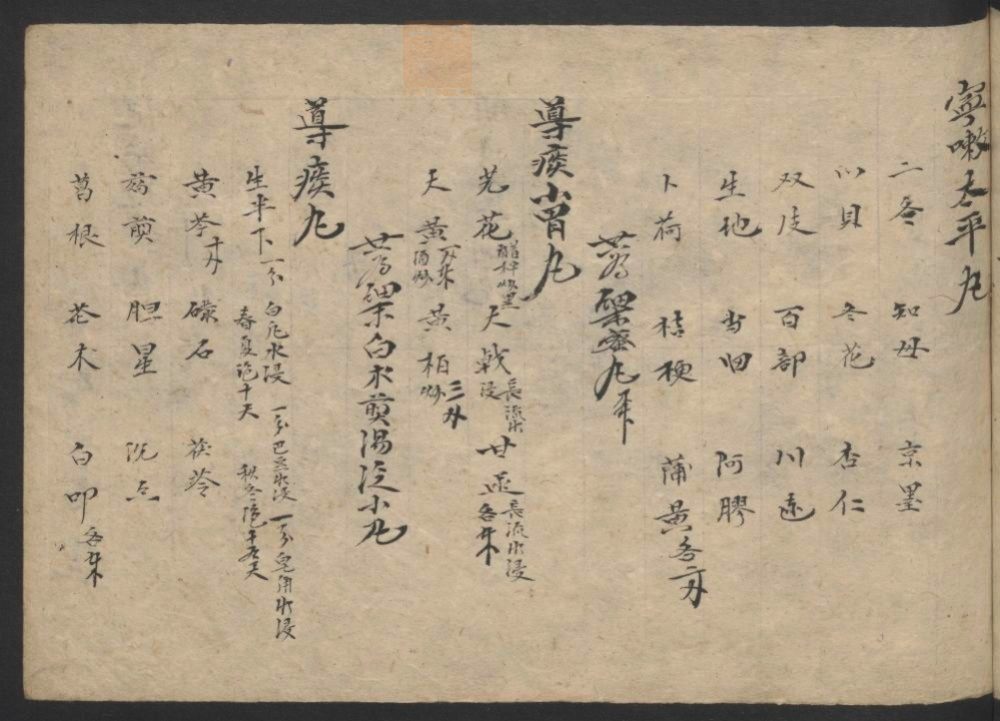 寧嗽太平丸
二冬 知母 京墨
川貝 冬花 杏仁
双皮 百部 川连
生地 当归 阿膠
卜荷 桔梗 蒲黄各二
蒡 丸
導痰小胃丸
芫花醋拌炒黑 天戟長流水浸 甘遂長流水浸
天黄酒炒 黄柏炒三
白术煎湯泛小丸
導痰丸
生半下 一分白凡水浸 一分巴豆水浸 一分皂角水浸
春夏浸十天 秋冬浸十五天
黄芩 礞石 茯苓
煎 胆星 沉香
葛根 苍术 白叩